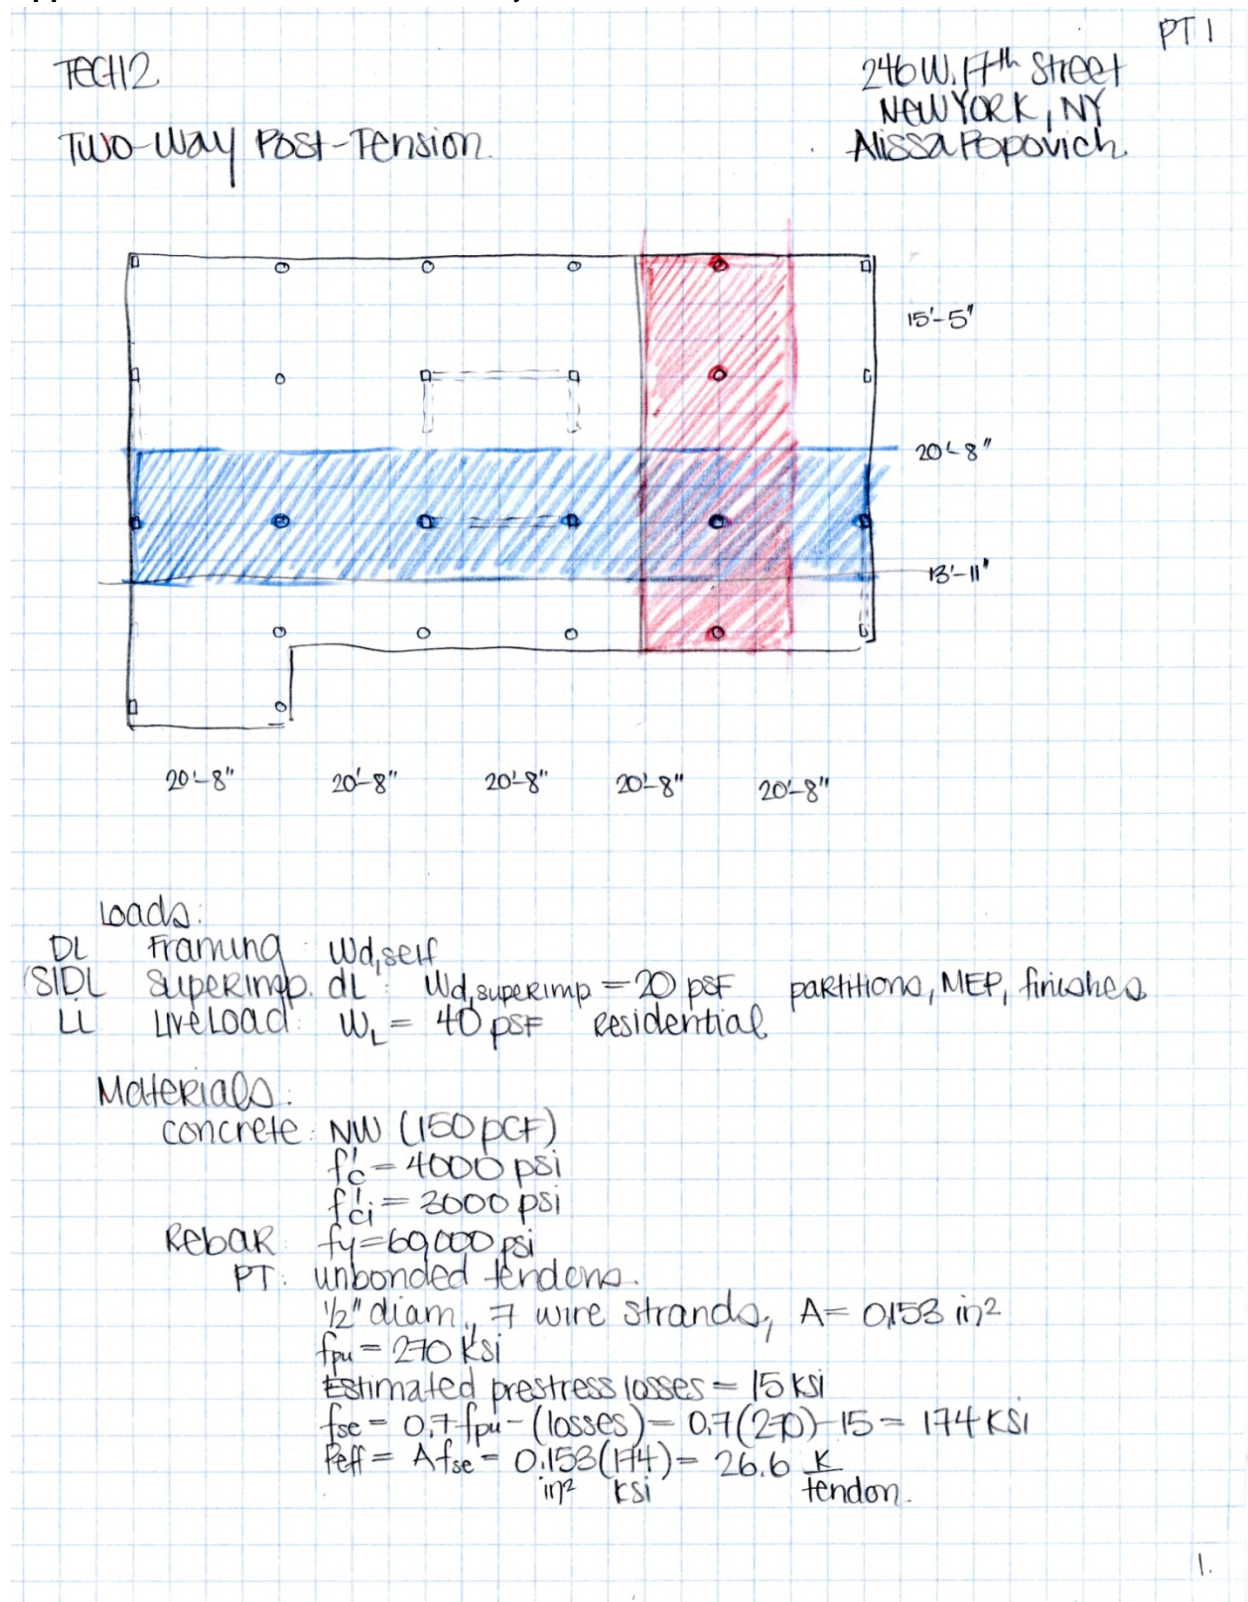 PT 1
TECH 2
246 W. 17th Street
New York, NY
Two-Way Post-Tension
Alissa Popovich
15'-5"
20'-8"
13'-11"
20'-8" 20'-8" 20'-8" 20'-8" 20'-8"
Loads:
DL Framing: Wd,self
SIDL Superimp. dL: Wd,superimp = 20 psf partitions, MEP, finishes
LL Live Load: WL = 40 psf Residential
Materials:
concrete: NW (150 pcf)
f'c = 4000 psi
f'ci = 3000 psi
Rebar: fy = 60,000 psi
PT: unbonded tendons.
1/2" diam., 7 wire strands, A = 0.153 in²
fpu = 270 ksi
Estimated prestress losses = 15 ksi
fse = 0.7fpu - (losses) = 0.7(270) - 15 = 174 ksi
Peff = Afse = 0.153(174) = 26.6 K
in² ksi tendon.
1.